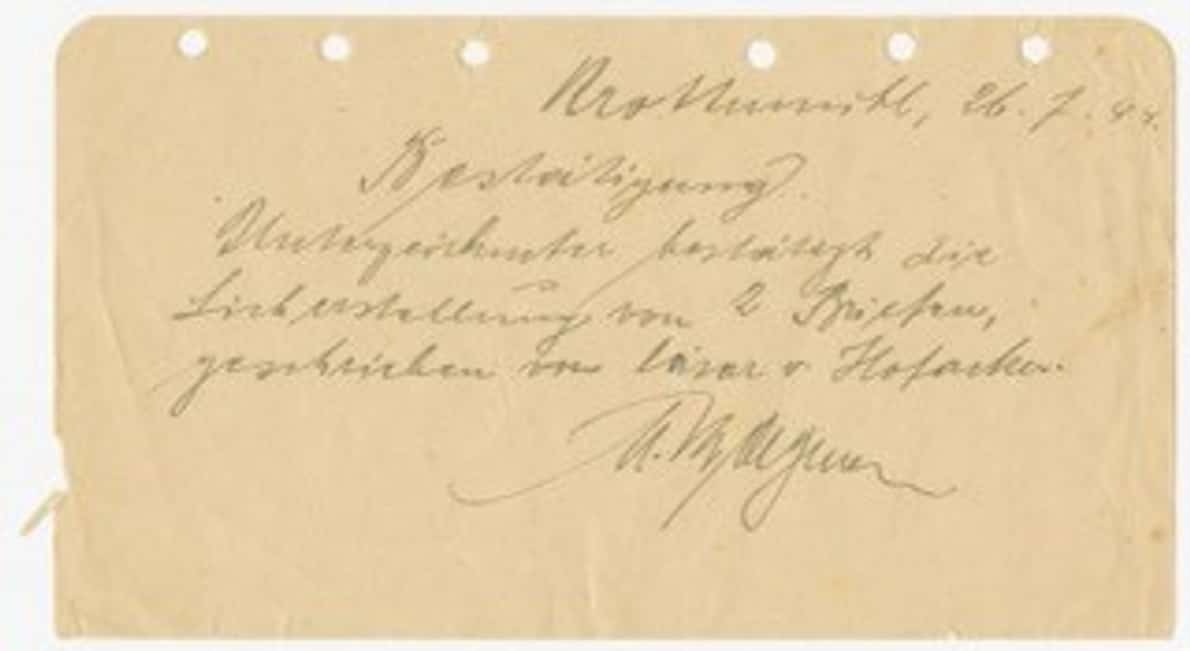 Krottenmühl, 26. 7. 44.
Bestätigung.
Unterzeichneter bestätigt die
Sicherstellung von 2 Briefen,
geschrieben von Cäsar v Hofacker.